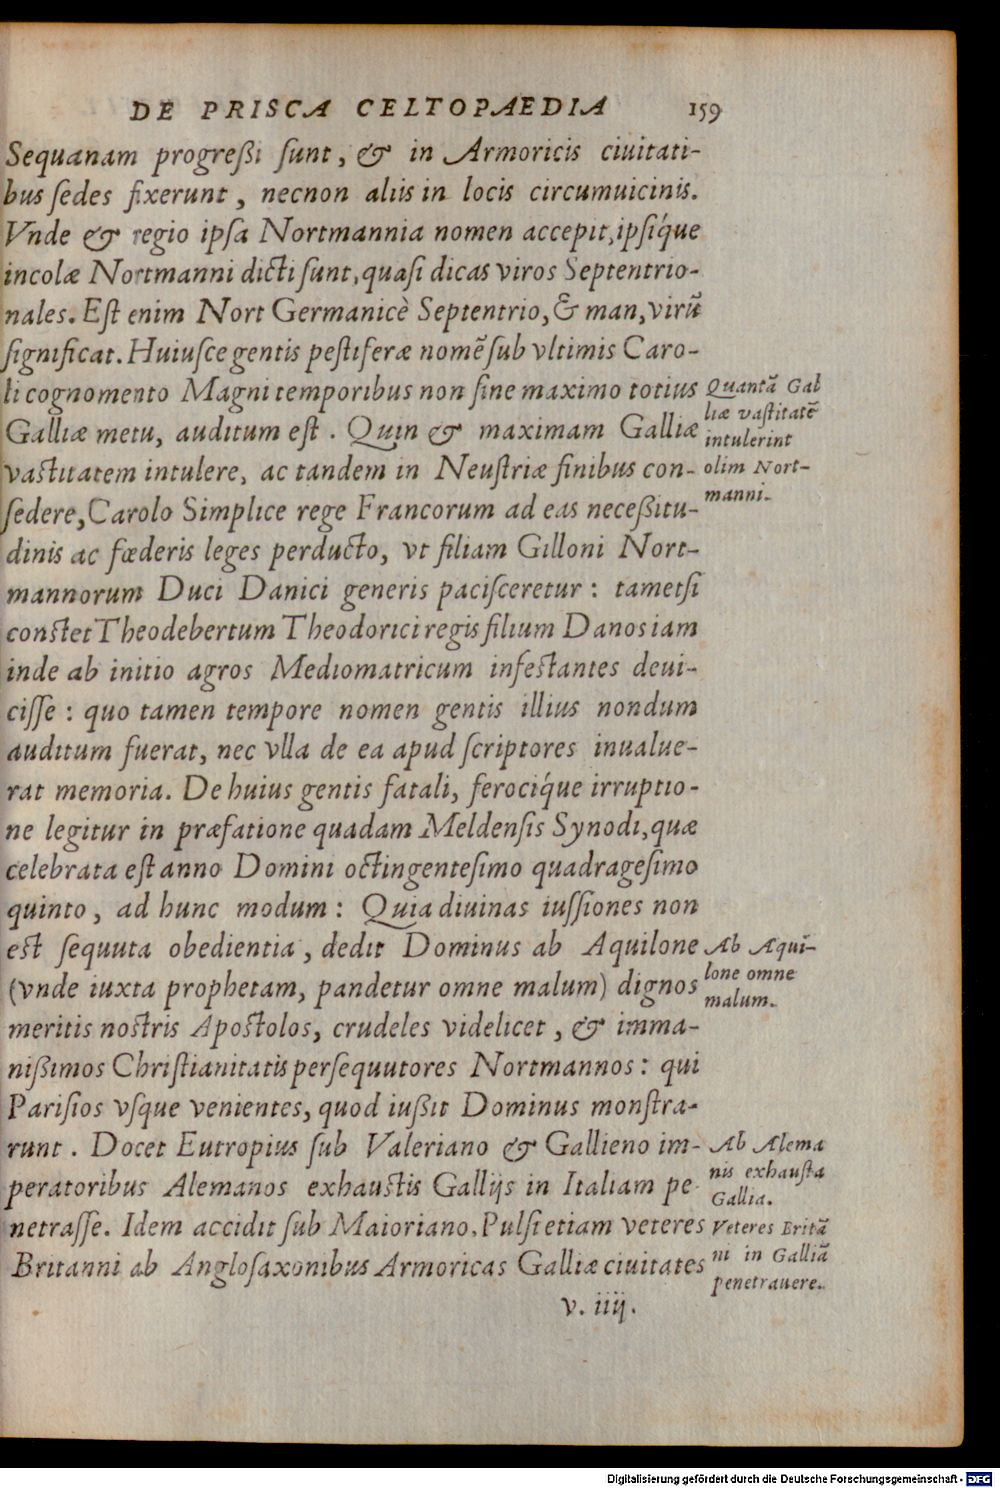 DE PRISCA CELTOPAEDIA 159
Sequanam progreßi ſunt, & in Armoricis ciuitati-
bus ſedes fixerunt, necnon aliis in locis circumuicinis.
Vnde & regio ipſa Nortmannia nomen accepit, ipſíque
incolæ Nortmanni dicti ſunt, quaſi dicas viros Septentrio-
nales. Eſt enim Nort Germanicè Septentrio, & man, virũ
ſignificat. Huiuſce gentis peſtiferæ nomẽ ſub vltimis Caro-
li cognomento Magni temporibus non ſine maximo totius
Galliæ metu, auditum eſt. Quin & maximam Galliæ
vaſtitatem intulere, ac tandem in Neuſtriæ finibus con-
ſedere, Carolo Simplice rege Francorum ad eas neceßitu-
dinis ac fœderis leges perducto, vt filiam Gilloni Nort-
mannorum Duci Danici generis paciſceretur: tametſi
conſtet Theodebertum Theodorici regis filium Danos iam
inde ab initio agros Mediomatricum infeſtantes deui-
ciſſe: quo tamen tempore nomen gentis illius nondum
auditum fuerat, nec vlla de ea apud ſcriptores inualue-
rat memoria. De huius gentis fatali, ferocíque irruptio-
ne legitur in præfatione quadam Meldenſis Synodi, quæ
celebrata eſt anno Domini octingenteſimo quadrageſimo
quinto, ad hunc modum: Quia diuinas iuſſiones non
eſt ſequuta obedientia, dedit Dominus ab Aquilone
(vnde iuxta prophetam, pandetur omne malum) dignos
meritis noſtris Apoſtolos, crudeles videlicet, & imma-
nißimos Chriſtianitatis perſequutores Nortmannos: qui
Pariſios vſque venientes, quod iußit Dominus monſtra-
runt. Docet Eutropius ſub Valeriano & Gallieno im-
peratoribus Alemanos exhauſtis Gallijs in Italiam pe-
netraſſe. Idem accidit ſub Maioriano. Pulſi etiam veteres
Britanni ab Angloſaxonibus Armoricas Galliæ ciuitates
v. iiij.
Quantã Gal
liæ vaſtitatẽ
intulerint
olim Nort-
manni.
Ab Aqui-
lone omne
malum.
Ab Alema
nis exhauſta
Gallia.
Veteres Britã
ni in Galliã
penetrauere.
Digitalisierung gefördert durch die Deutsche Forschungsgemeinschaft - DFG